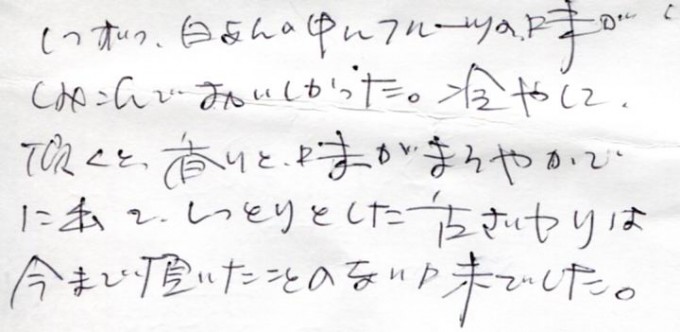 1つずつ、白あんの中にフルーツの味が
しみこんでおいしかった。冷やして、
頂くと、香りと、味がまろやかで
しっとりとした舌ざわりは
今まで頂いたことのない味でした。